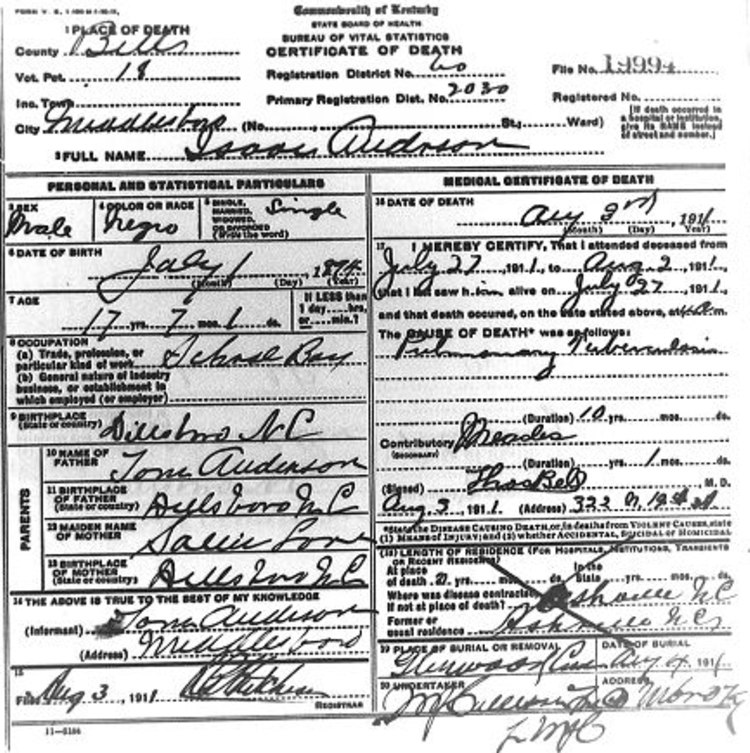 Commonwealth of Kentucky
STATE BOARD OF HEALTH
BUREAU OF VITAL STATISTICS
CERTIFICATE OF DEATH
1 PLACE OF DEATH
County Bells
Vot. Pct. 18
Inc. Town
City Middlesboro (No. St.; Ward)
Registration District No. 60
Primary Registration Dist. No. 2030
File No. 19994
Registered No.
[If death occurred in
a hospital or institution,
give its NAME instead
of street and number.]
2 FULL NAME Isaac Anderson
PERSONAL AND STATISTICAL PARTICULARS
3 SEX
Male
4 COLOR OR RACE
Negro
5 SINGLE,
MARRIED,
WIDOWED
OR DIVORCED
(Write the word)
Single
6 DATE OF BIRTH
July 1, 1894
(Month) (Day) (Year)
7 AGE
17 yrs. 7 mos. 1 ds.
If LESS than
1 day ... hrs.
or ... min.?
8 OCCUPATION
(a) Trade, profession, or
particular kind of work School Boy
(b) General nature of industry
business, or establishment in
which employed (or employer)
9 BIRTHPLACE
(State or country) Dillsboro NC
PARENTS
10 NAME OF
FATHER Tom Anderson
11 BIRTHPLACE
OF FATHER
(State or country) Dillsboro NC
12 MAIDEN NAME
OF MOTHER Sallie Love
13 BIRTHPLACE
OF MOTHER
(State or country) Dillsboro NC
14 THE ABOVE IS TRUE TO THE BEST OF MY KNOWLEDGE
(Informant) Tom Anderson
(Address) Middlesboro
15
Filed Aug 3, 1911
REGISTRAR
11-5184
MEDICAL CERTIFICATE OF DEATH
16 DATE OF DEATH
Aug 3rd, 1911
(Month) (Day) Year
17 I HEREBY CERTIFY, That I attended deceased from
July 27, 1911, to Aug. 2, 1911,
that I last saw him alive on July 27, 1911,
and that death occured, on the date stated above, at 4 a.m.
The CAUSE OF DEATH* was as follows:
Pulmonary Tuberculosis
(Duration) 10 yrs. mos. ds.
Contributory Measles
(SECONDARY)
(Duration) yrs. 1 mos. ds.
(Signed) Thos Bell M. D.
Aug 3, 1911. (Address) 322 N. 19th St
*State the DISEASE CAUSING DEATH, or, in deaths from VIOLENT CAUSES, state
(1) MEANS OF INJURY; and (2) whether ACCIDENTAL, SUICIDAL or HOMICIDAL
(18) LENGTH OF RESIDENCE (FOR HOSPITALS, INSTITUTIONS, TRANSIENTS
OR RECENT RESIDENTS)
At place
of death yrs. mos. ds.
In the
State yrs. mos. ds.
Where was disease contracted
If not at place of death? Asheville NC
Former or
usual residence Asheville NC
19 PLACE OF BURIAL OR REMOVAL
DATE OF BURIAL
1911
20 UNDERTAKER
ADDRESS